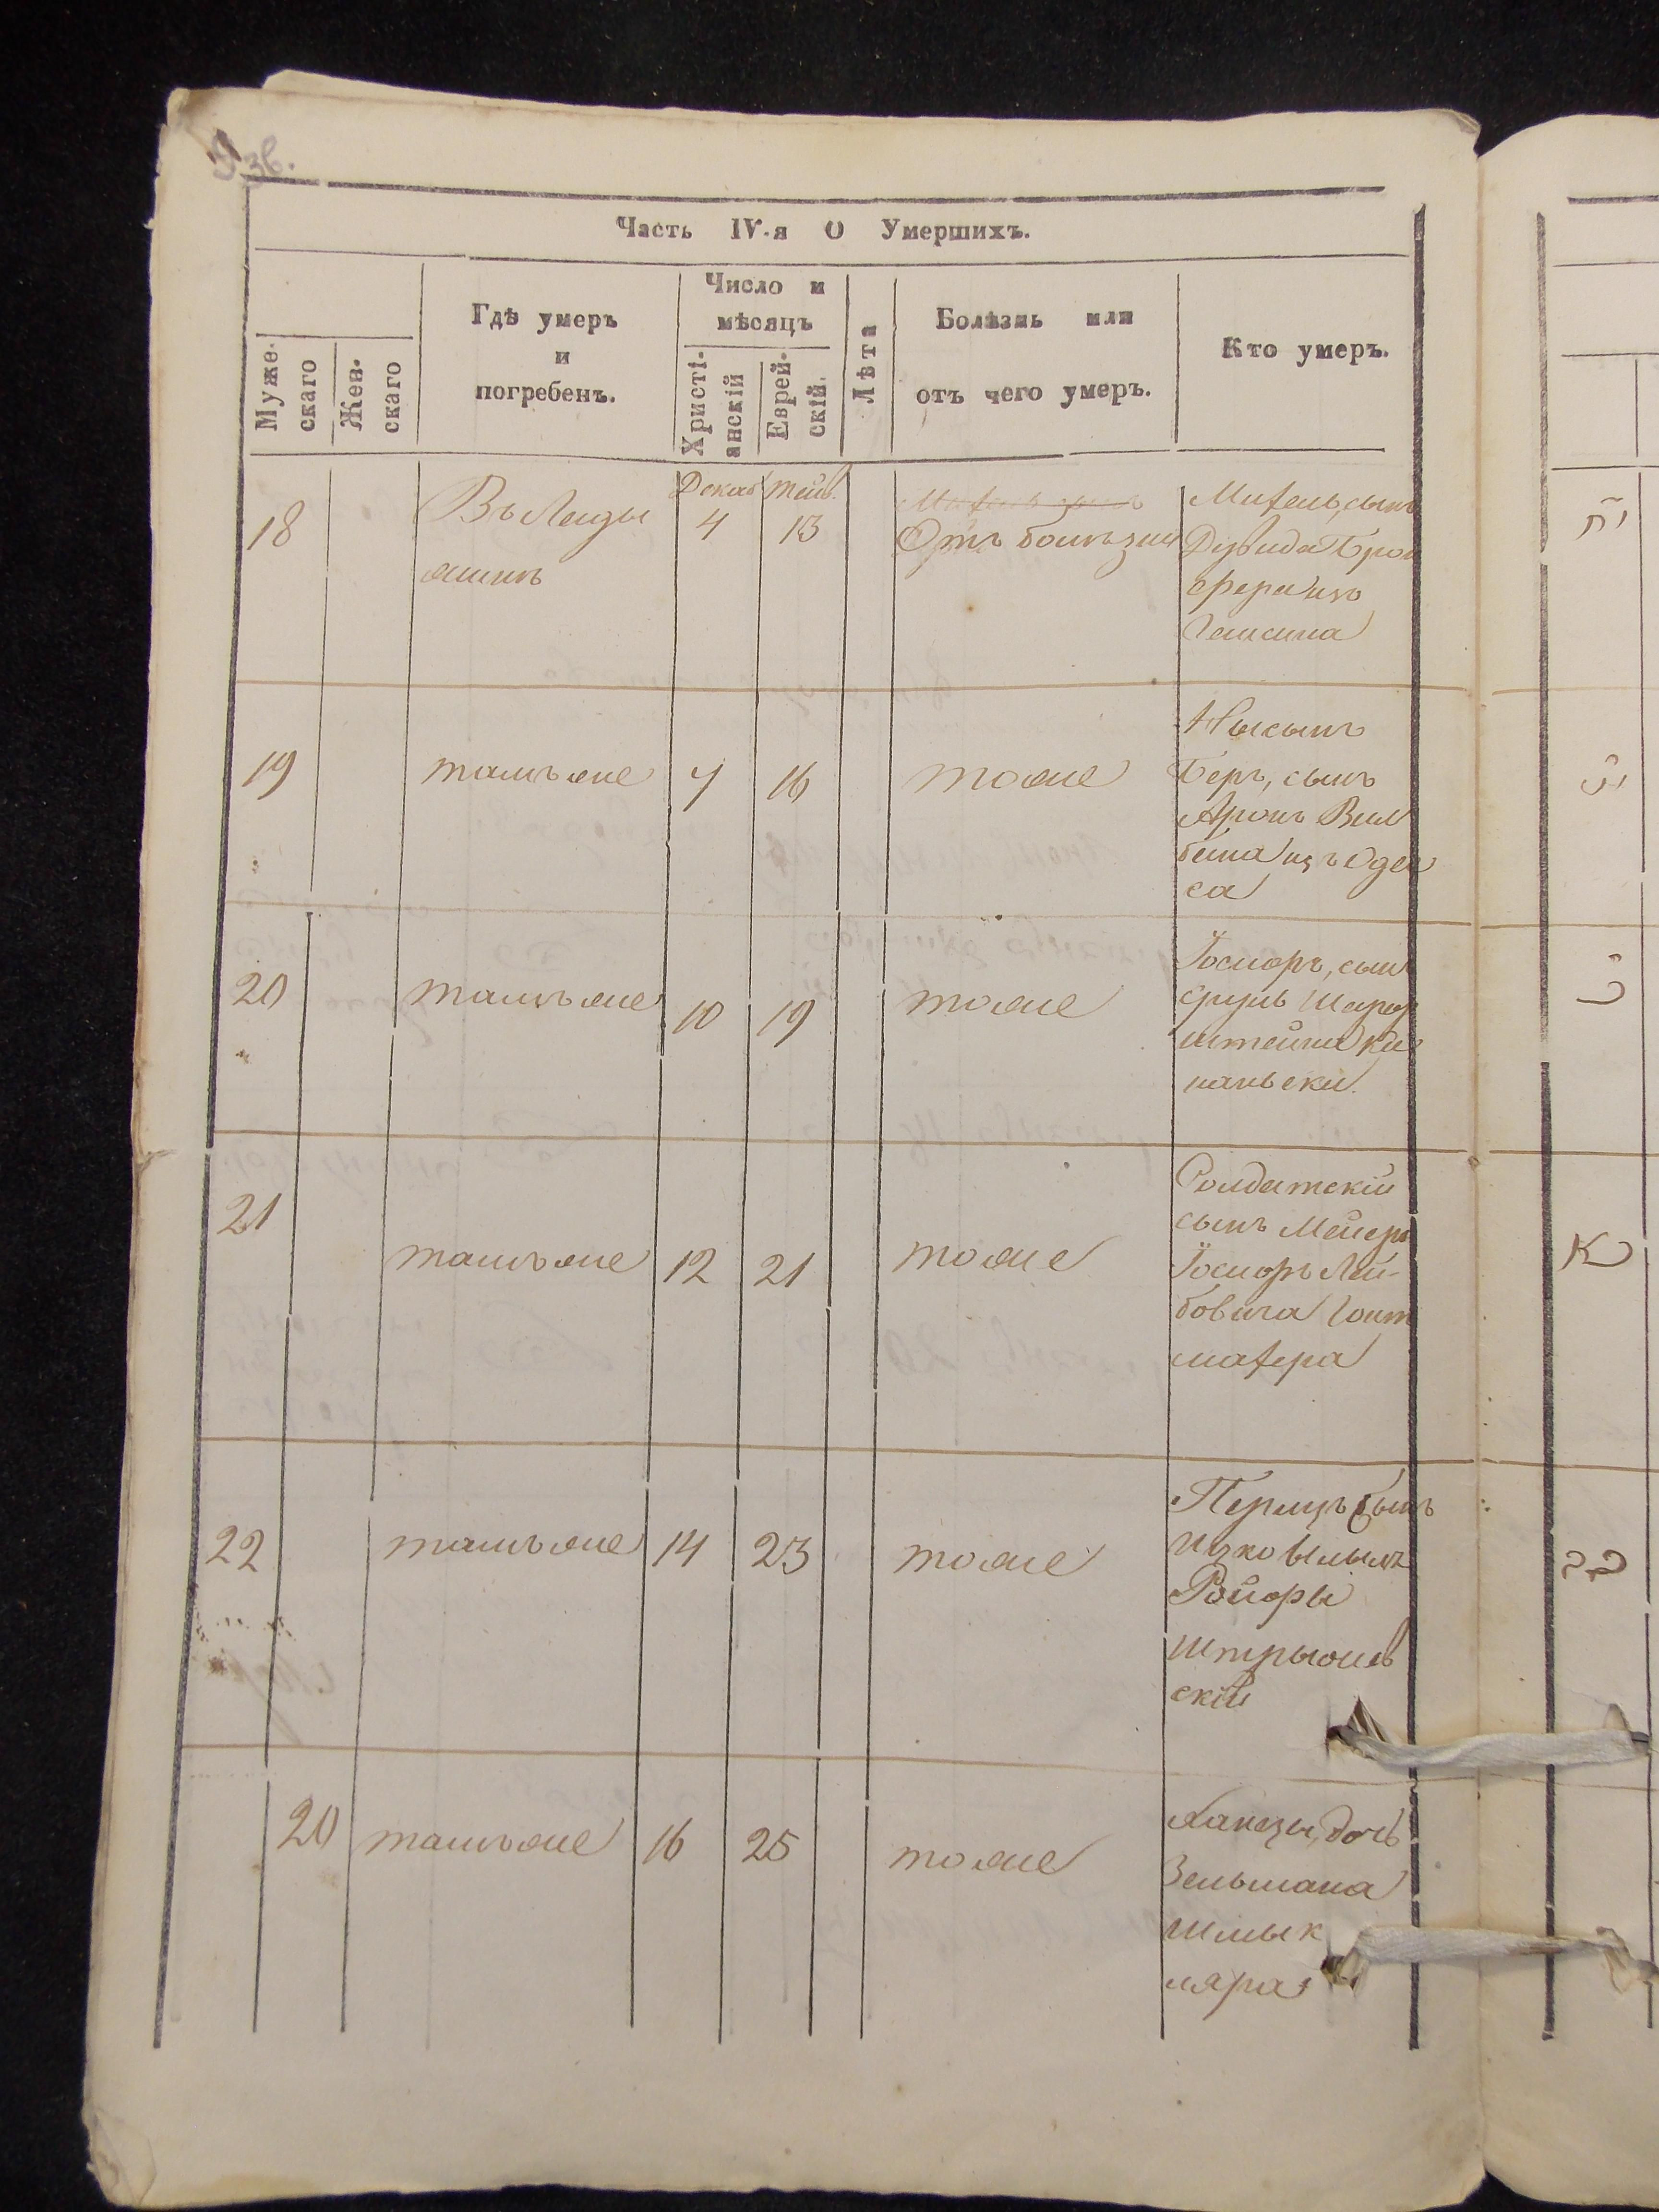 9 зв.
Часть IV-я О Умершихъ.
Муже-
скаго
Жен-
скаго
Гдѣ умеръ
и
погребенъ.
Число и
мѣсяцъ
Христі-
анскій
Еврей-
скій.
Лѣта
Болѣзнь или
отъ чего умеръ.
Кто умеръ.
18
Въ
Декаб
4
13
Отъ болѣзни
сынъ
Дувида
19
тамъ же
7
16
тоже
Беръ, сынъ
Аронъ Вел
изъ Одес
са
20
тамъ же
10
19
тоже
Іосифъ, сын
Сруль
штейна
21
тамъ же
12
21
тоже
Солдатскій
сынъ Мейеръ
Іосифъ Лей-
бовича Гонт
махера
22
тамъ же
14
23
тоже
Перецъ сынъ
скій
20
тамъ же
16
25
тоже
дочь
Зельмана
Шмык
ляра
יח
יט
כ
כא
כב